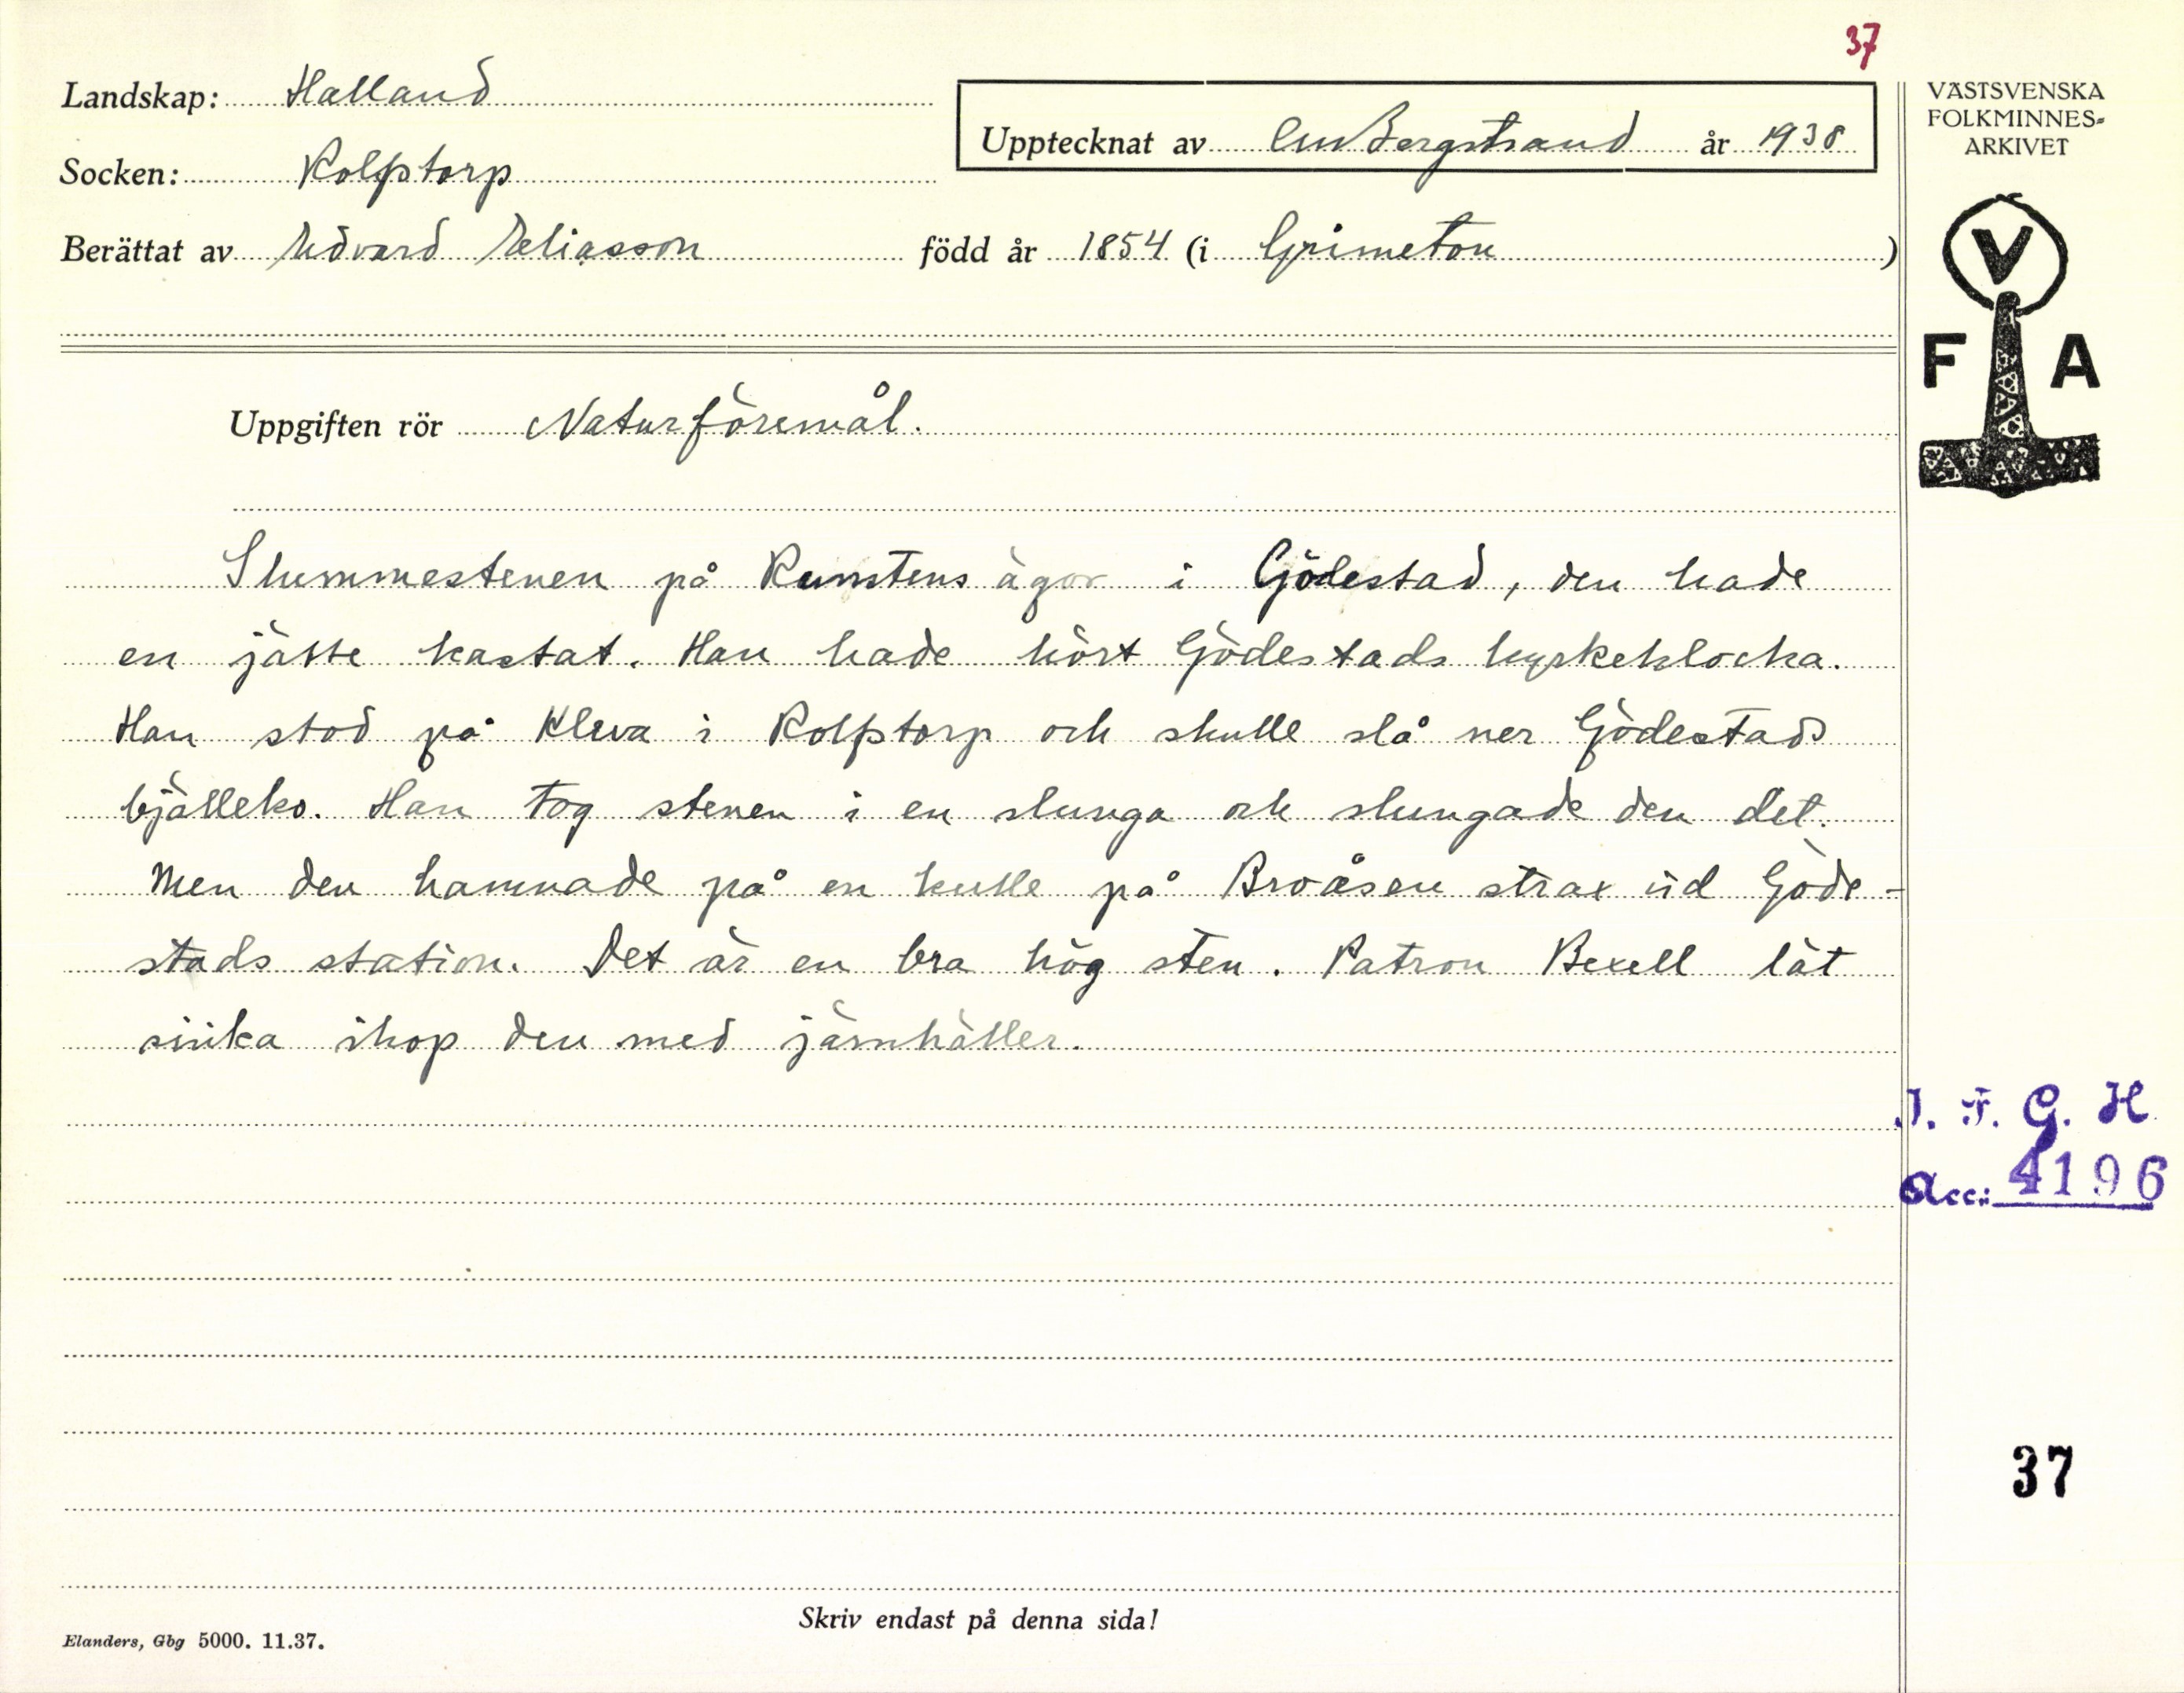 37
Landskap: Halland
Upptecknat av CM Bergstrand år 1938
Socken: Rolfstorp
Berättat av Edvard Eliasson född år 1854 (i Grimeton )
Uppgiften rör Naturföremål.
Slummestenen på Runstens ägor i Gödestad, den hade
en jätte kastat. Han hade hört Gödestads kyrkeklocka.
Han stod på Kleva i Rolfstorp och skulle slå ner Gödestads
bjälleko. Han tog stenen i en slunga och slungade den dit.
Men den hamnade på en kulle på Broåsen strax vid Göde-
stads station. Det är en bra hög sten. Patron Bexell lät
sinka ihop den med järnhäller.
VÄSTSVENSKA
FOLKMINNES-
ARKIVET
V
F A
I. F. G. H
Acc: 4196
37
Skriv endast på denna sida!
Elanders, Gbg 5000. 11.37.